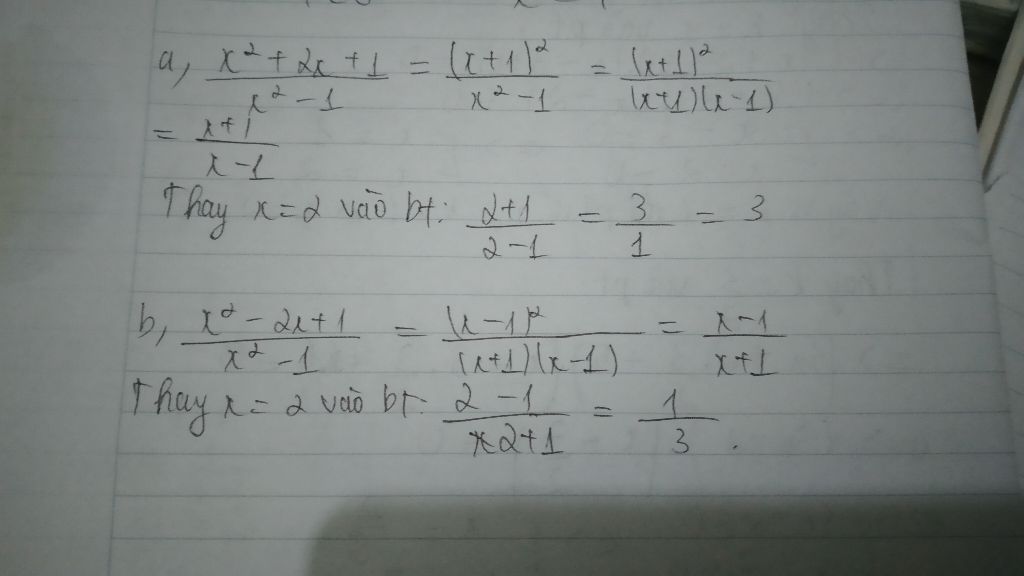 a, x² + 2x + 1 / x² - 1 = (x+1)² / x² - 1 = (x+1)² / (x+1)(x-1)
= x+1 / x-1
Thay x=2 vào bt: 2+1 / 2-1 = 3 / 1 = 3
b, x² - 2x+1 / x² - 1 = (x-1)² / (x+1)(x-1) = x-1 / x+1
Thay x=2 vào bt: 2-1 / 2+1 = 1 / 3.